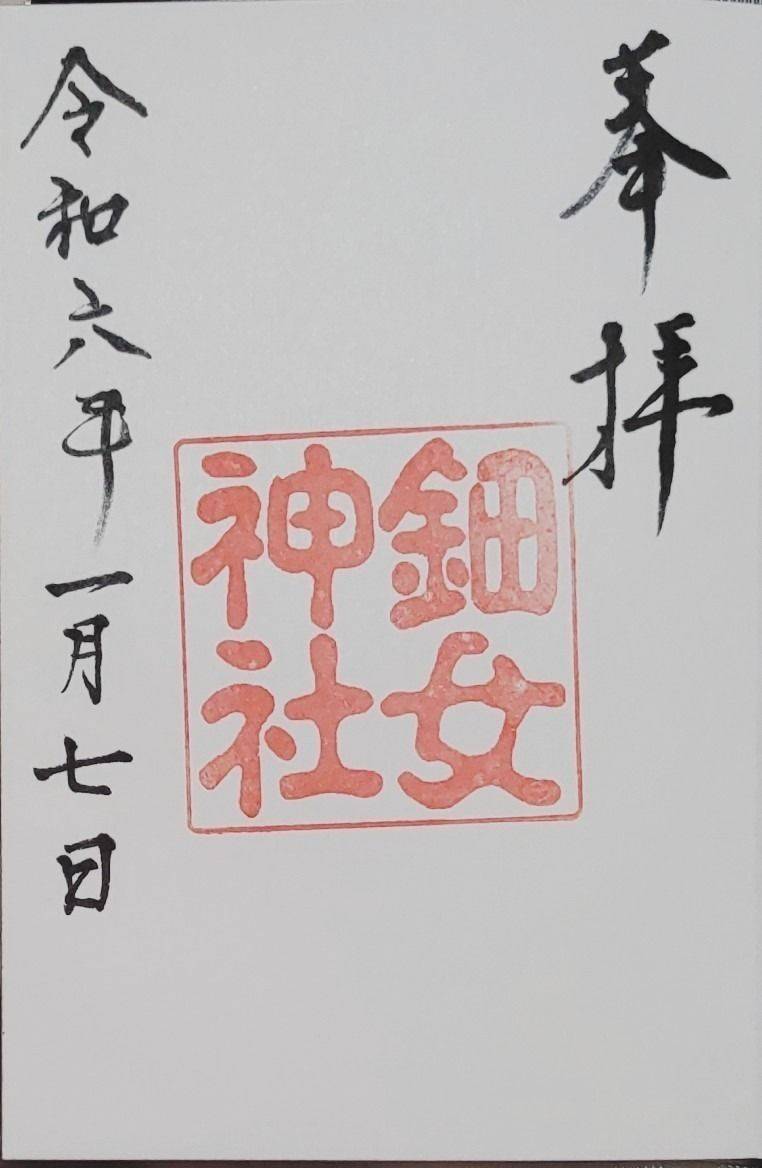 奉拝
鈿女
神社
令和六年一月七日